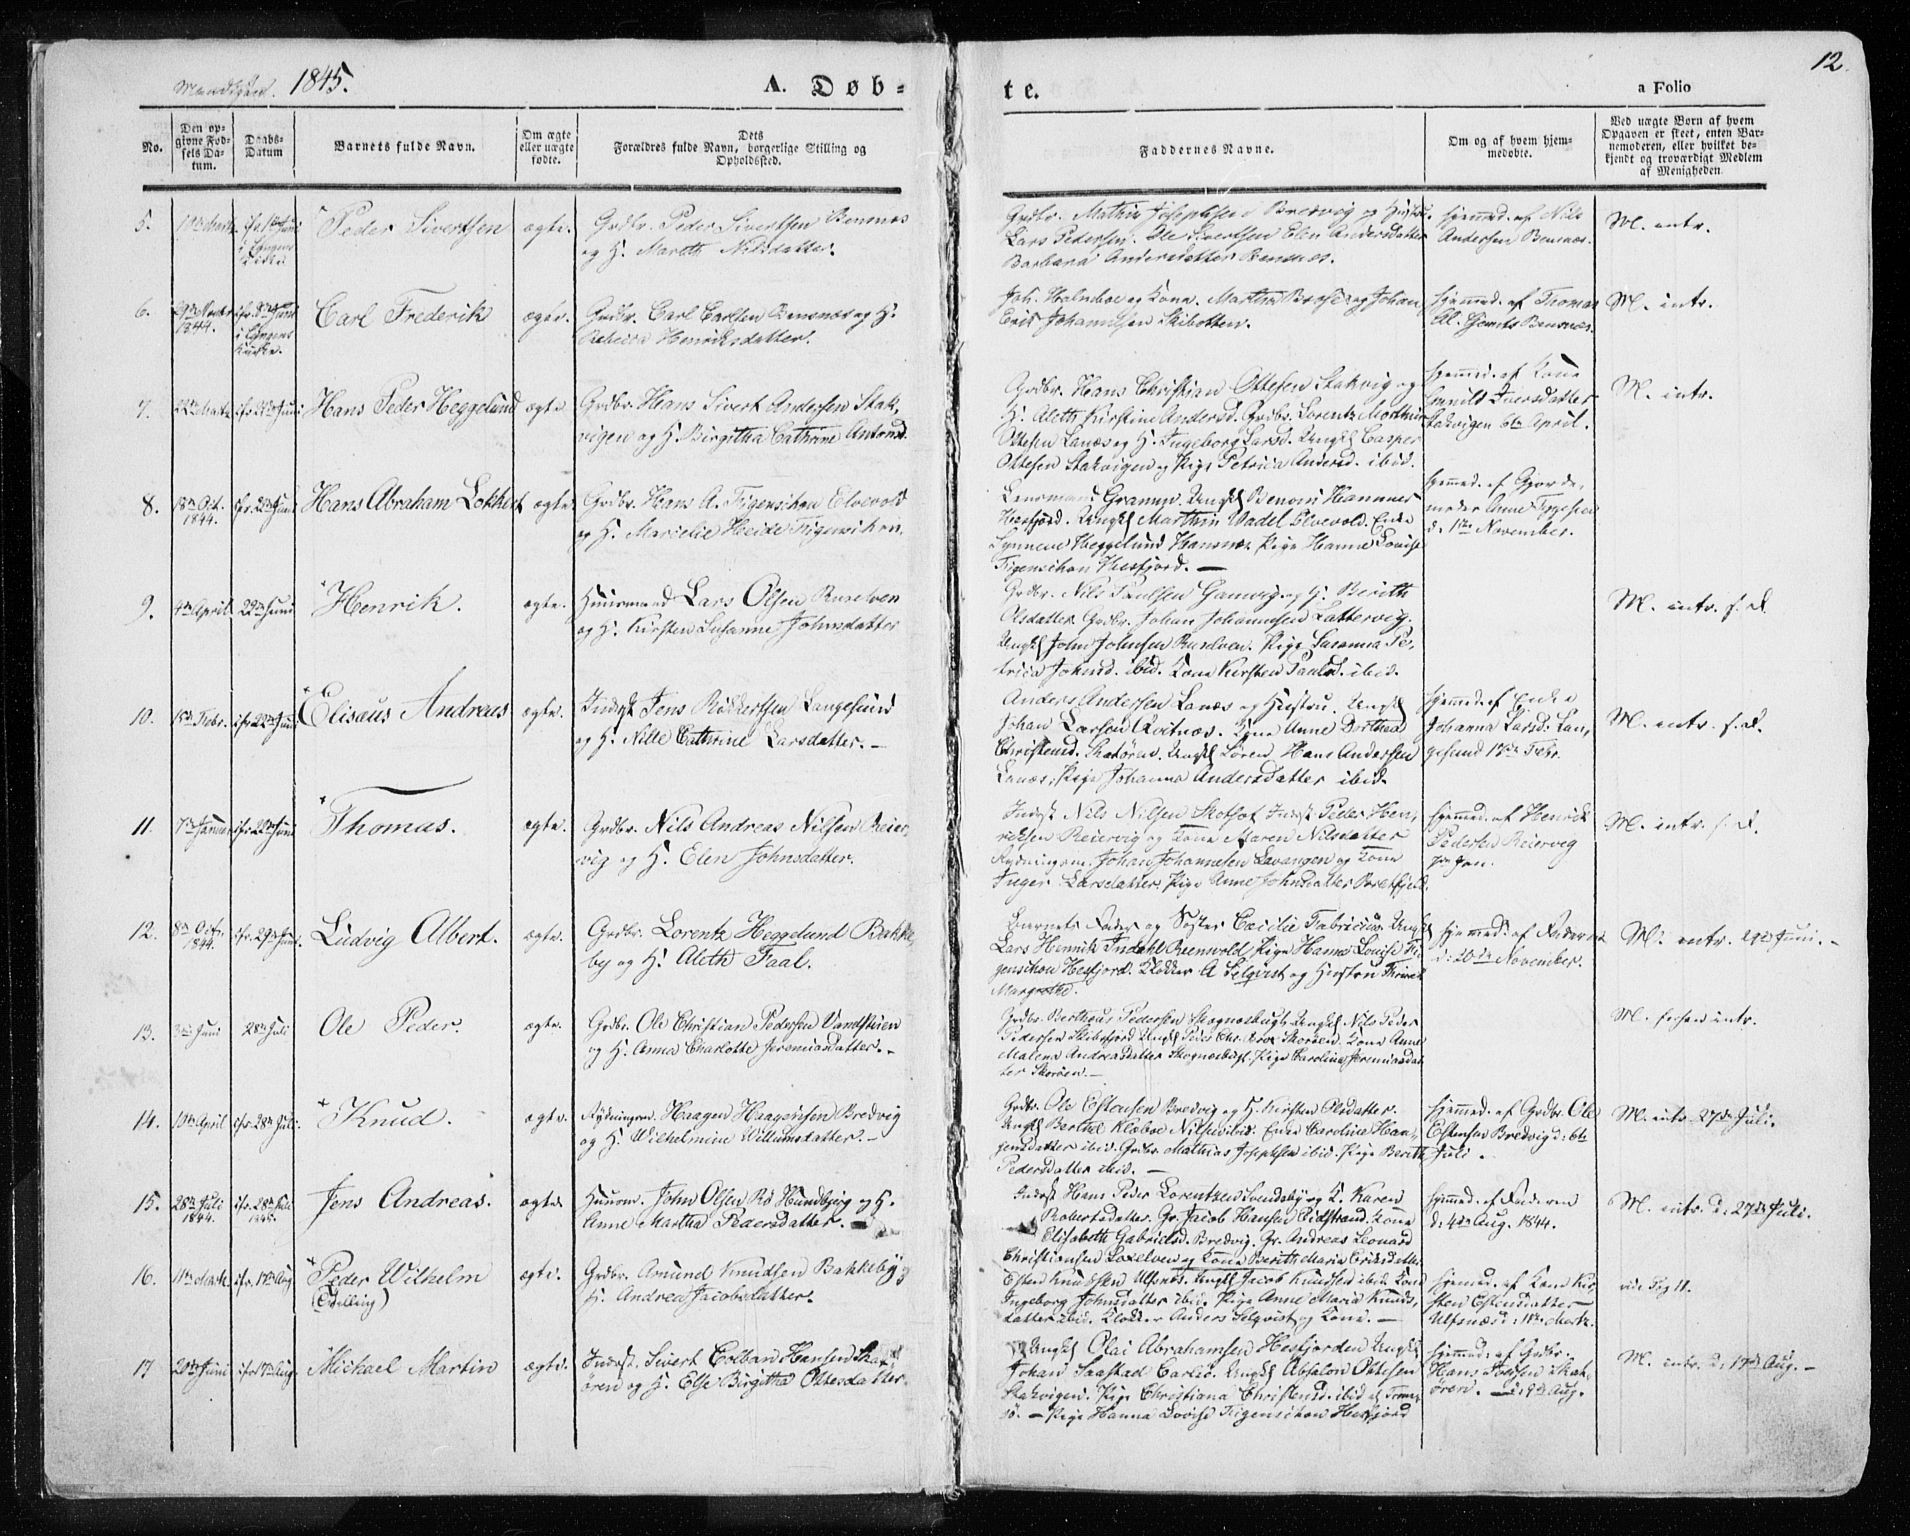 Mandkjøn. 1845.
A. Døb-
te.
12.
a Folio
No.
Den op-
givne Fød-
sels Da-
tum.
Daabs-
Datum
Barnets fulde Navn.
Om ægte
eller uægte
fødte.
Dets
Forældres fulde Navn, borgerlige Stilling og
Opholdssted.
Faddernes Navne.
Om og af hvem hjem-
medøbte.
Ved uægte Born af hvem
Opgaven er skeet, enten Bar-
nemoderen, eller hvilket be-
kjendt og troværdigt Medlem
af Menigheden.
5.
Peder Sivertsen
ægte.
Grdbr. Peder Sivertsen Bensnes
og H. Mareth Nilsdatter.
Grdbr. Mathis Josephsen Bredvig og Hustru.
Lars Pedersen. Ole Sivertsen Elen Andersdatter
Barbara Andersdatter Bensnes.
hjemmed. af Nils
Andersen Bensnæs.
M. intr.
6.
1844.
i Lyngens
Kirke.
Carl Frederik
ægte.
Grdbr. Carl Carlsen Bensnæs og H.
Rebecca Henriksdatter.
Joh. Holmboe og Kone. Martha og Johan
Eric Johannesen Skibotten.
hjemmed. af Thomas
Bensnæs.
M. intr.
7.
22de Marts
Hans Peder Heggelund
ægte
Grdbr. Hans Sivert Andersen Stak-
vigen og H. Birgitha Cathrine Antonsd.
Grdbr. Hans Christian Ottesen Stakvig og
H. Aleth Kirstine Andersd. Grdbr. Lorentz Morthin
Ottesen Lanæs og H. Ingeborg Larsd. Ungkl Casper
Ottesen Stakvigen og Pige Petrica Andersd. ibid.
hjemmed. af Kone
Gunild Iversdatter
Stakvigen 6te April.
M. intr.
8.
18de Oct.
1844.
Hans Abraham Lokkert
ægte
Grdbr. Hans A. Figenschou Elvevold
og H. Marielie Heide Figenschou.
Lensmand Gramm. Ungkl Benoni Hammer
Hesfjord. Ungkl Marthin Wadel Elvevold. Enke
Synneve Heggelund Hansnæs. Pige Hanne Louise
Figenschou Hesfjord. —
hjemmed. af Gjorde-
moder Anne
d. 1ste November.
9.
4de April
22de Juni
Henrik.
ægte.
Huusmand Lars Olsen Russelven
og H. Kirsten Susanne Johnsdatter
Grdbr. Nils Paulsen Gamvig og H. Berith
Olsdatter. Grdbr. Johan Johannesen Lattervig.
Ungkl John Johnsen Russelven. Pige Susanna Pe-
trica Johnsd. ibid. Kone Kirsten Paulsd. ibid.
M. intr. s. D.
10.
15de Febr.
Elisæus Andreas
ægte.
Inderst Jens Langesund
og H. Nille Cathrine Larsdatter. —
Anders Andersen Lanæs og Hustru. Ungkl
Johan Larsen Kvitnæs. Pige Anne Dorthea
Christensd. Skatøren. Ungkl Søren Hans Andersen
Lanæs, Pige Johanna Andersdatter ibid.
hjemmed. af Enke
Johanna Larsd. Lan-
gesund 17de Febr.
M. intr. s. D.
11.
7de Januar
Thomas.
ægte.
Grdbr. Nils Andreas Nilsen Reier-
vig og H. Elen Johnsdatter.
Inderst Nils Nilsen Inderst Peder Hen-
riksen Reiervig og Kone Maren Nilsdatter
Rydningsm. Johan Johannesen Lavangen og Kone
Inger Larsdatter. Pige Anne Johnsdatter
hjemmed. af Henrik
Pedersen Reiervig
M. intr. s. D.
12.
8de Octr.
1844.
Ludvig Albert.
ægte.
Grdbr. Lorentz Heggelund Bakke-
by og H. Aleth Faal.
Barnets Fader og Søster Cecilie Fabricius. Ungkl
Lars Henrik Reenvold, Pige Hanna Louise Fi-
genschou Hesfjord. Klokker A Selqvist og Hustru
Margrethe.
hjemmed. af Faderen
d. 20de November.
M. intr. 29de Juni. —
13.
3die Juni
28de Juli
Ole Peder.
ægte.
Grdbr. Ole Christian Pedersen Vandstuen
og H. Anna Charlotte Jeremiasdatter. —
Grdbr. Bertheus Pedersen Skognesbugt. Ungkl Nils Peder
Pedersen Ungkl Peder Chr. Skoroen. Kone Anne
Malena Andreasdatter Pige Caroline Jeremiasdat-
ter Skoroen. —
M. intr.
14.
10de April
Knud.
ægte.
Rydningsm. Haagen Haagensen Bredvig
og H. Wilhelmine Willumsdatter. —
Grdbr. Ole Estensen Bredvig og H. Kirsten Olsdatter.
Ungkl Berthel Klæboe Nilsen ibid. Enke Caroline Han-
sensdatter ibid. Grdbr. Mathias Josephsen ibid. Pige Berith
Pedersdatter ibid. —
hjemmed. af Grdbr. Ole
Estensen Bredvig d: 6te
Juli.
M. intr. 27de Juli.
15.
28de Juli
1844.
1845.
Jens Andreas.
ægte.
Huusm. John Olsen Hundbjerg og H.
Anne Martha Pedersdatter. —
Inderst Hans Peder Lorentzen Svendsby og K. Karen
Robertsdatter. Gr. Jacob Hansen Eidstrand. Kone
Elisabeth Gabrielsd. Bredvig. Gr. Andreas Leonard
Christiansen Loxelven og Kone Berith Maria Eriksdatter
hjemmed. af Faderen
d: 4de Aug. 1844.
M. intr. d: 27de Juli.
16.
11te Marts
Peder Wilhelm
(Tvilling)
ægte.
Grdbr. Amund Knudsen Bakkeby og
H. Andrea Jacobsdatter.
Esten Knudsen Ulfsnæs. Ungkl Jacob Knudsen ibid. Kone
Ingeborg Johnsdatter ibid. Pige Anne Maria Knuds-
datter ibid. Klokker Anders Selqvist og Kone. —
hjemmed. af Kone Kir-
sten Estensdatter
Ulfsnæs d: 11te Marts.
vide Pag 11.
17
20de Juni
Mickael Martin
ægte.
Inderst. Sivert Colban Hansen Skat-
ören og H. Else Birgitha Ottesdatter.
Ungkl Olai Abrahamsen Hesfjorden Ungkl
Johan Saastad Carlsö. Ungkl Absalon Ottesen
Stakvigen. Pige Christiana Christensd. ibid af Trom-
sö. — Pige Hanna Lovise Figenschou Hesfjord
hjemmed. af Grdbr.
Hans Skat-
ören.
M. intr. d: 17de Aug. —